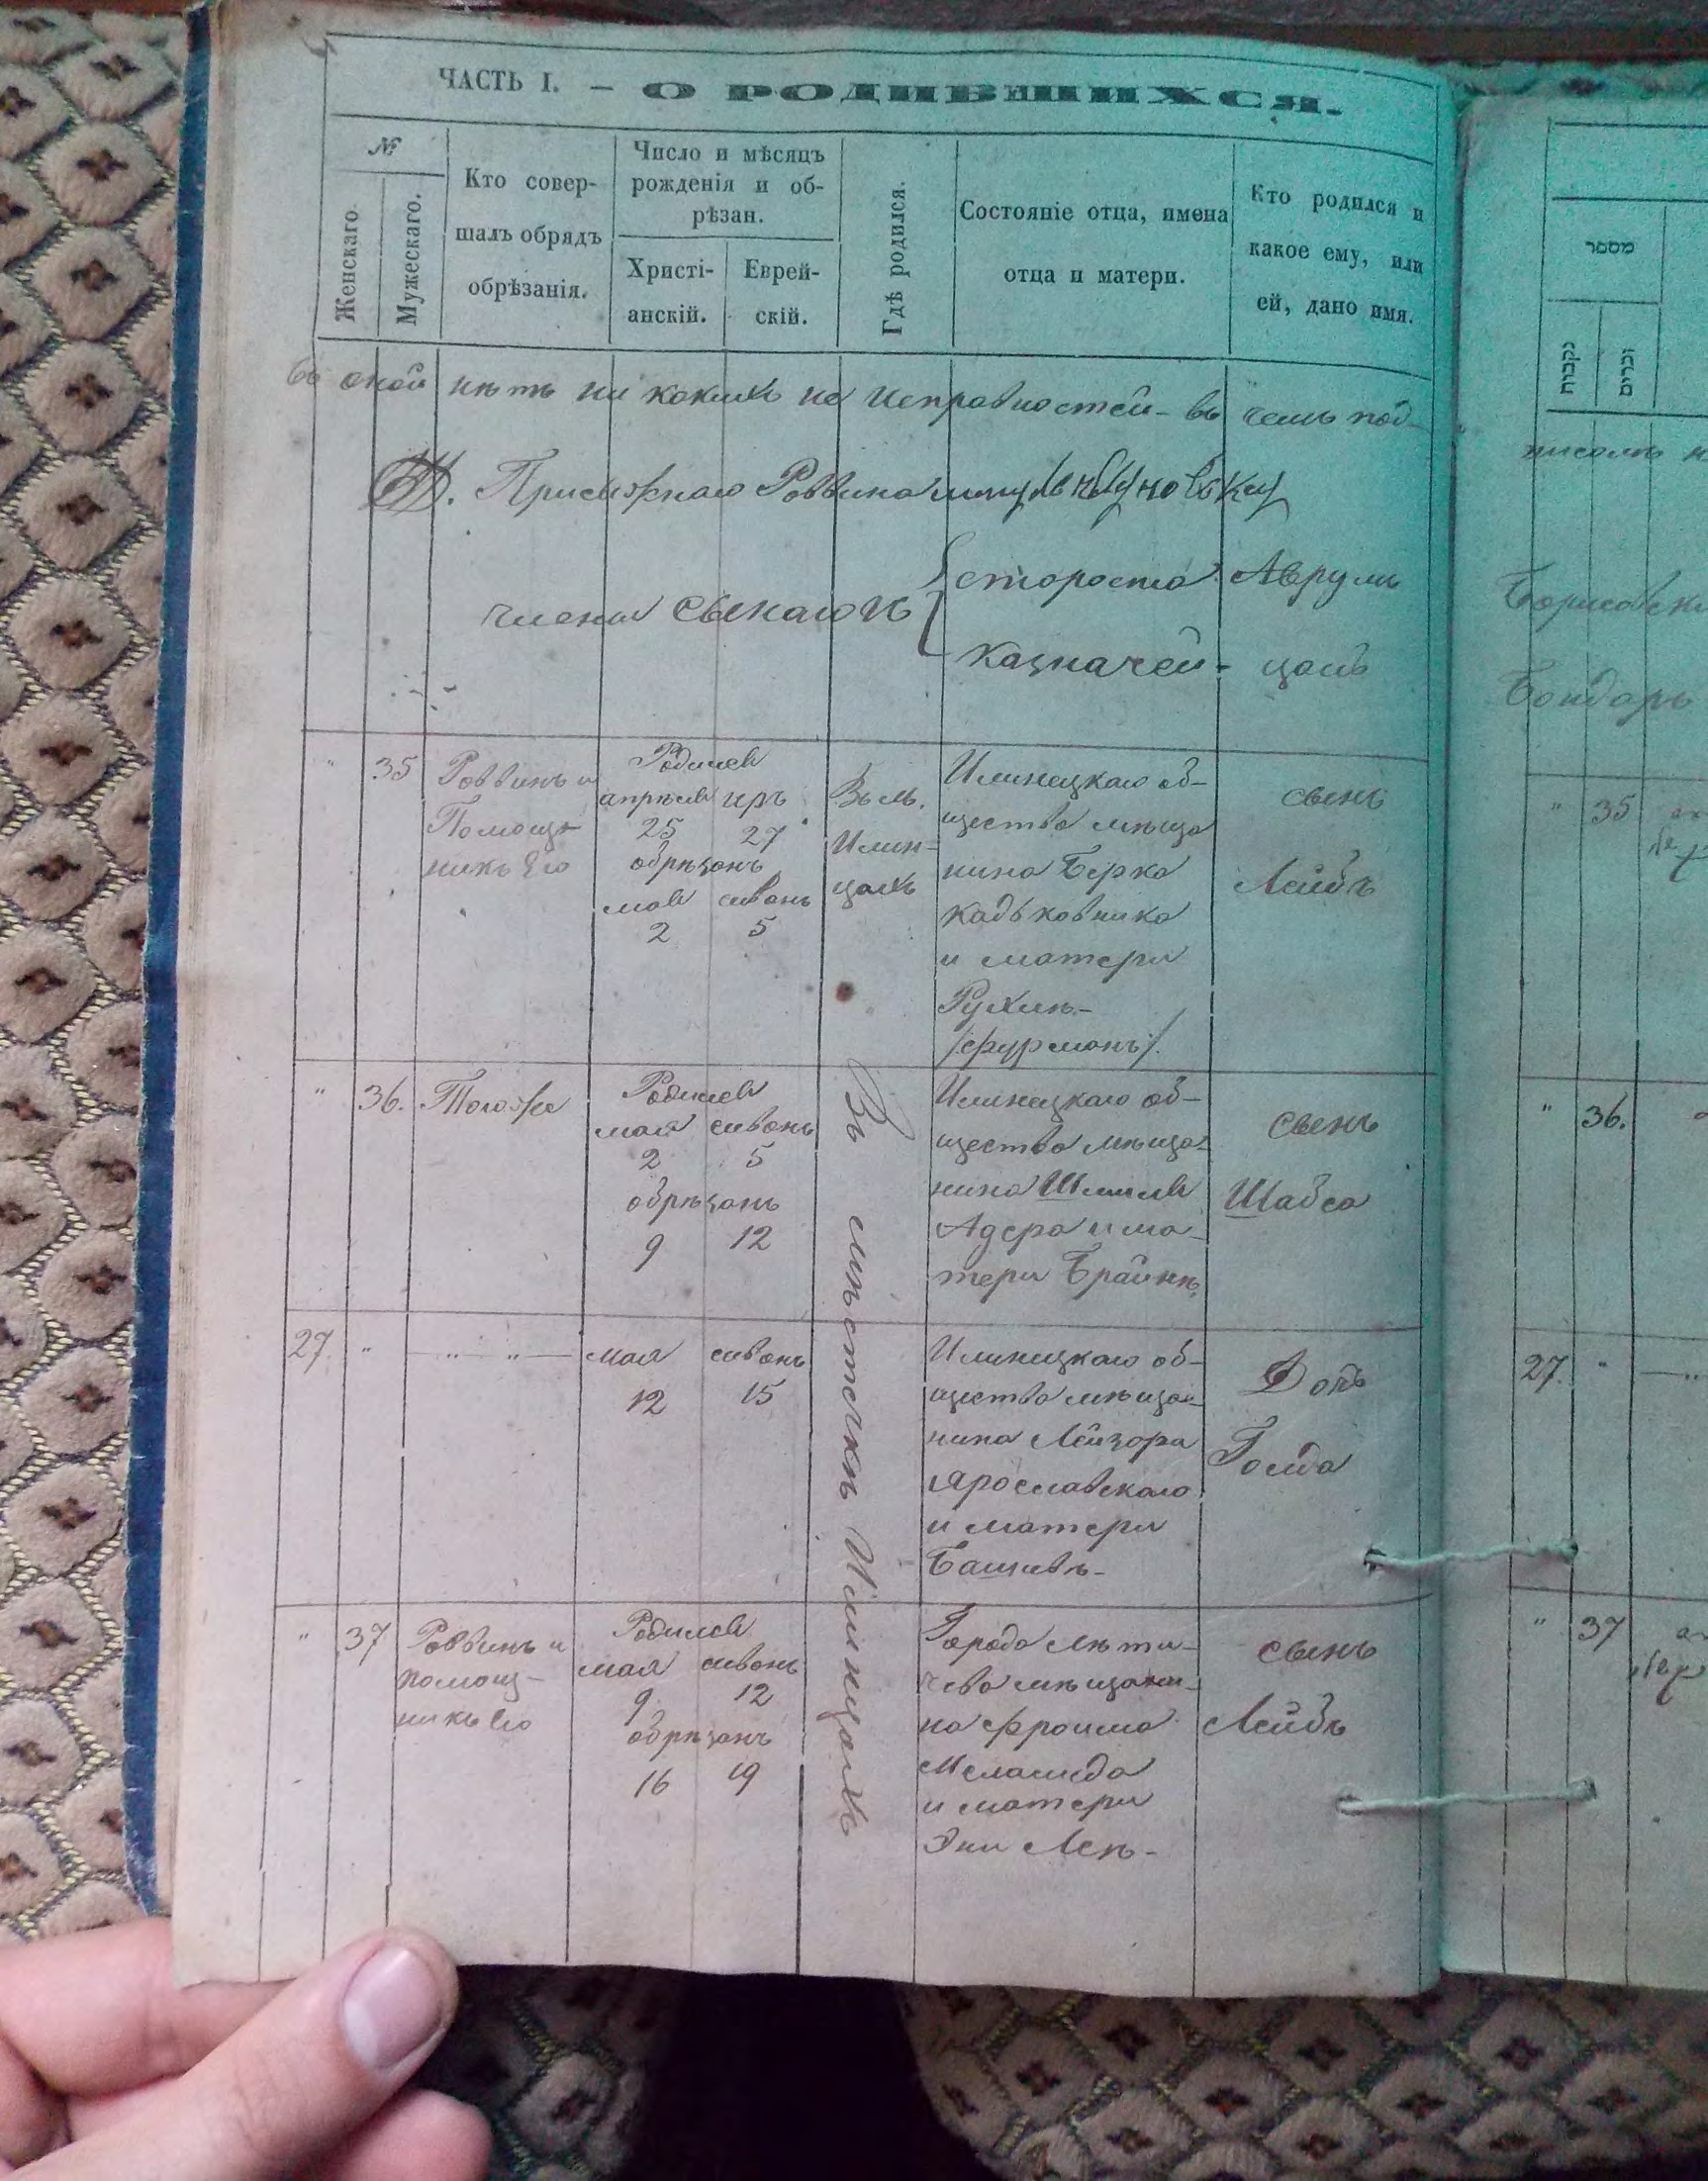 ЧАСТЬ I. — О РОДИВШИХСЯ.
№
Женскаго.
Мужескаго.
Кто совер-
шалъ обрядъ
обрѣзанія.
Число и мѣсяцъ
рожденія и об-
рѣзан.
Христі-
анскій.
Еврей-
скій.
Гдѣ родился.
Состояніе отца, имена
отца и матери.
Кто родился и
какое ему, или
ей, дано имя.
въ оной нѣтъ ни какихъ не исправностей - въ чемъ под-
Присяжнаго Раввина
члены
староста Аврумъ
казначей -
" 35
Раввинъ и
Помощ-
никъ Его
Родился
апрѣля иръ
25 27
обрѣзанъ
мая сивонь
2 5
Въ м.
Илин-
цахъ
Илинецкаго об-
щества мѣща
нина Берка
Кадьковника
и матери
Рухли-
/фурманъ/.
сынъ
Лейбъ
" 36.
Тогоже
Родился
мая сивонь
2 5
обрѣзанъ
9 12
Въ мѣстечкѣ Илинцахъ
Илинецкаго об-
щества мѣща-
нина Шмиля
Адера и ма-
тери Брайны
сынъ
Шабса
27. "
— " — " —
мая сивонь
12 15
Илинецкаго об-
щества мѣща-
нина Лейзора
Ярославскаго
и матери
Башивъ-
Дочь
Голда
" 37
Раввинъ и
помощ-
никъ Его
Родился
мая сивонь
9 12
обрѣзанъ
16 19
Города Лѣти-
чева мѣщани-
на Фроима
и матери
Эни Леѣ-
сынъ
Лейбъ
מספר
נקבות
זכרים
Бондарь
" 35
" 36.
27. "
" 37